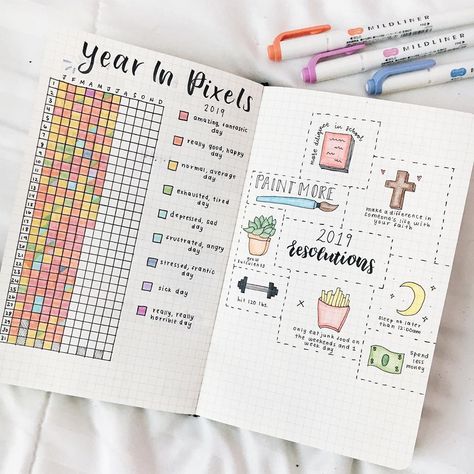 Year In Pixels
2019
J F M A M J J A S O N D
amazing, fantastic
day
really good, happy
day
normal, average
day
exhausted, tired
day
depressed, sad
day
frustrated, angry
day
stressed, frantic
day
sick day
really, really
horrible day
more diligence in school
PAINT MORE
make a difference in
someone's life with
your faith
2019
resolutions
grow
succulents
hit 120 lbs.
x
only eat junk food on
the weekends and 1
week day
sleep no later
than 12:00am
spend
less
money
MILDLINER
MILDLINER